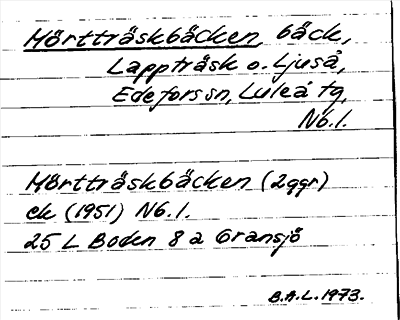 Mörtträskbäcken, bäck,
Lappträsk o. Ljuså,
Edeforssn, Luleå tg,
Nb.l.
Mörtträskbäcken (2ggr)
ek (1951) Nb.l.
25 L Boden 8 a Gransjö
B.A.L. 1973.